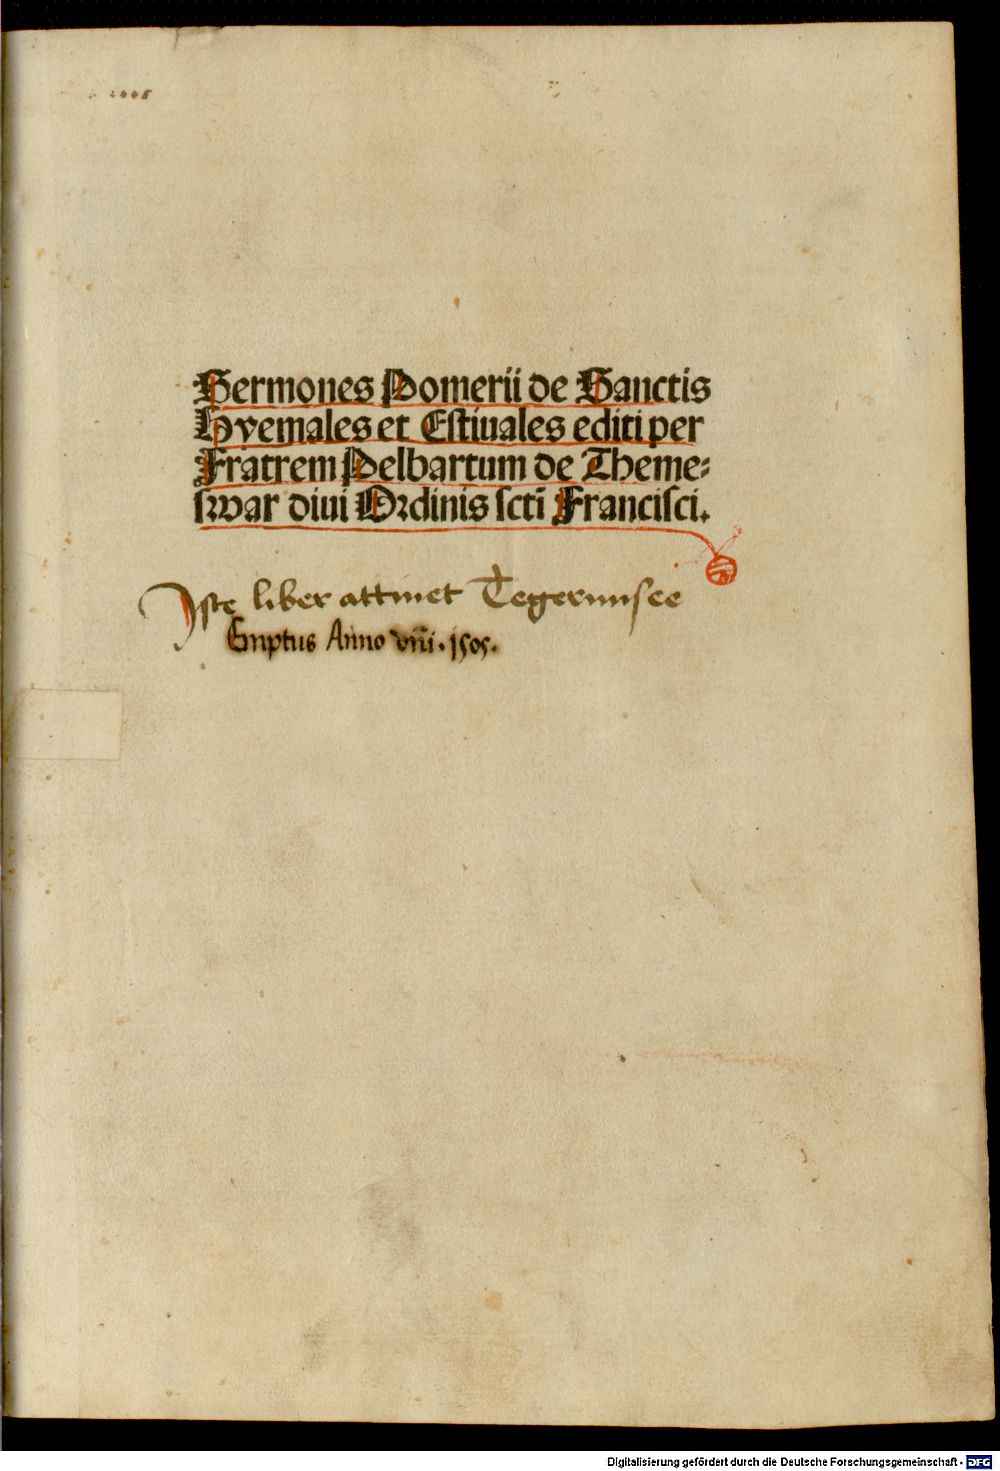 Sermones Pomerii de Sanctis
Hyemales et Estiuales editi per
Fratrem Pelbartum de Theme-
swar diui Ordinis scti Francisci.
Iste liber attinet Tegernnsee
Emptus Anno dni . 1505 .
Digitalisierung gefördert durch die Deutsche Forschungsgemeinschaft - DFG